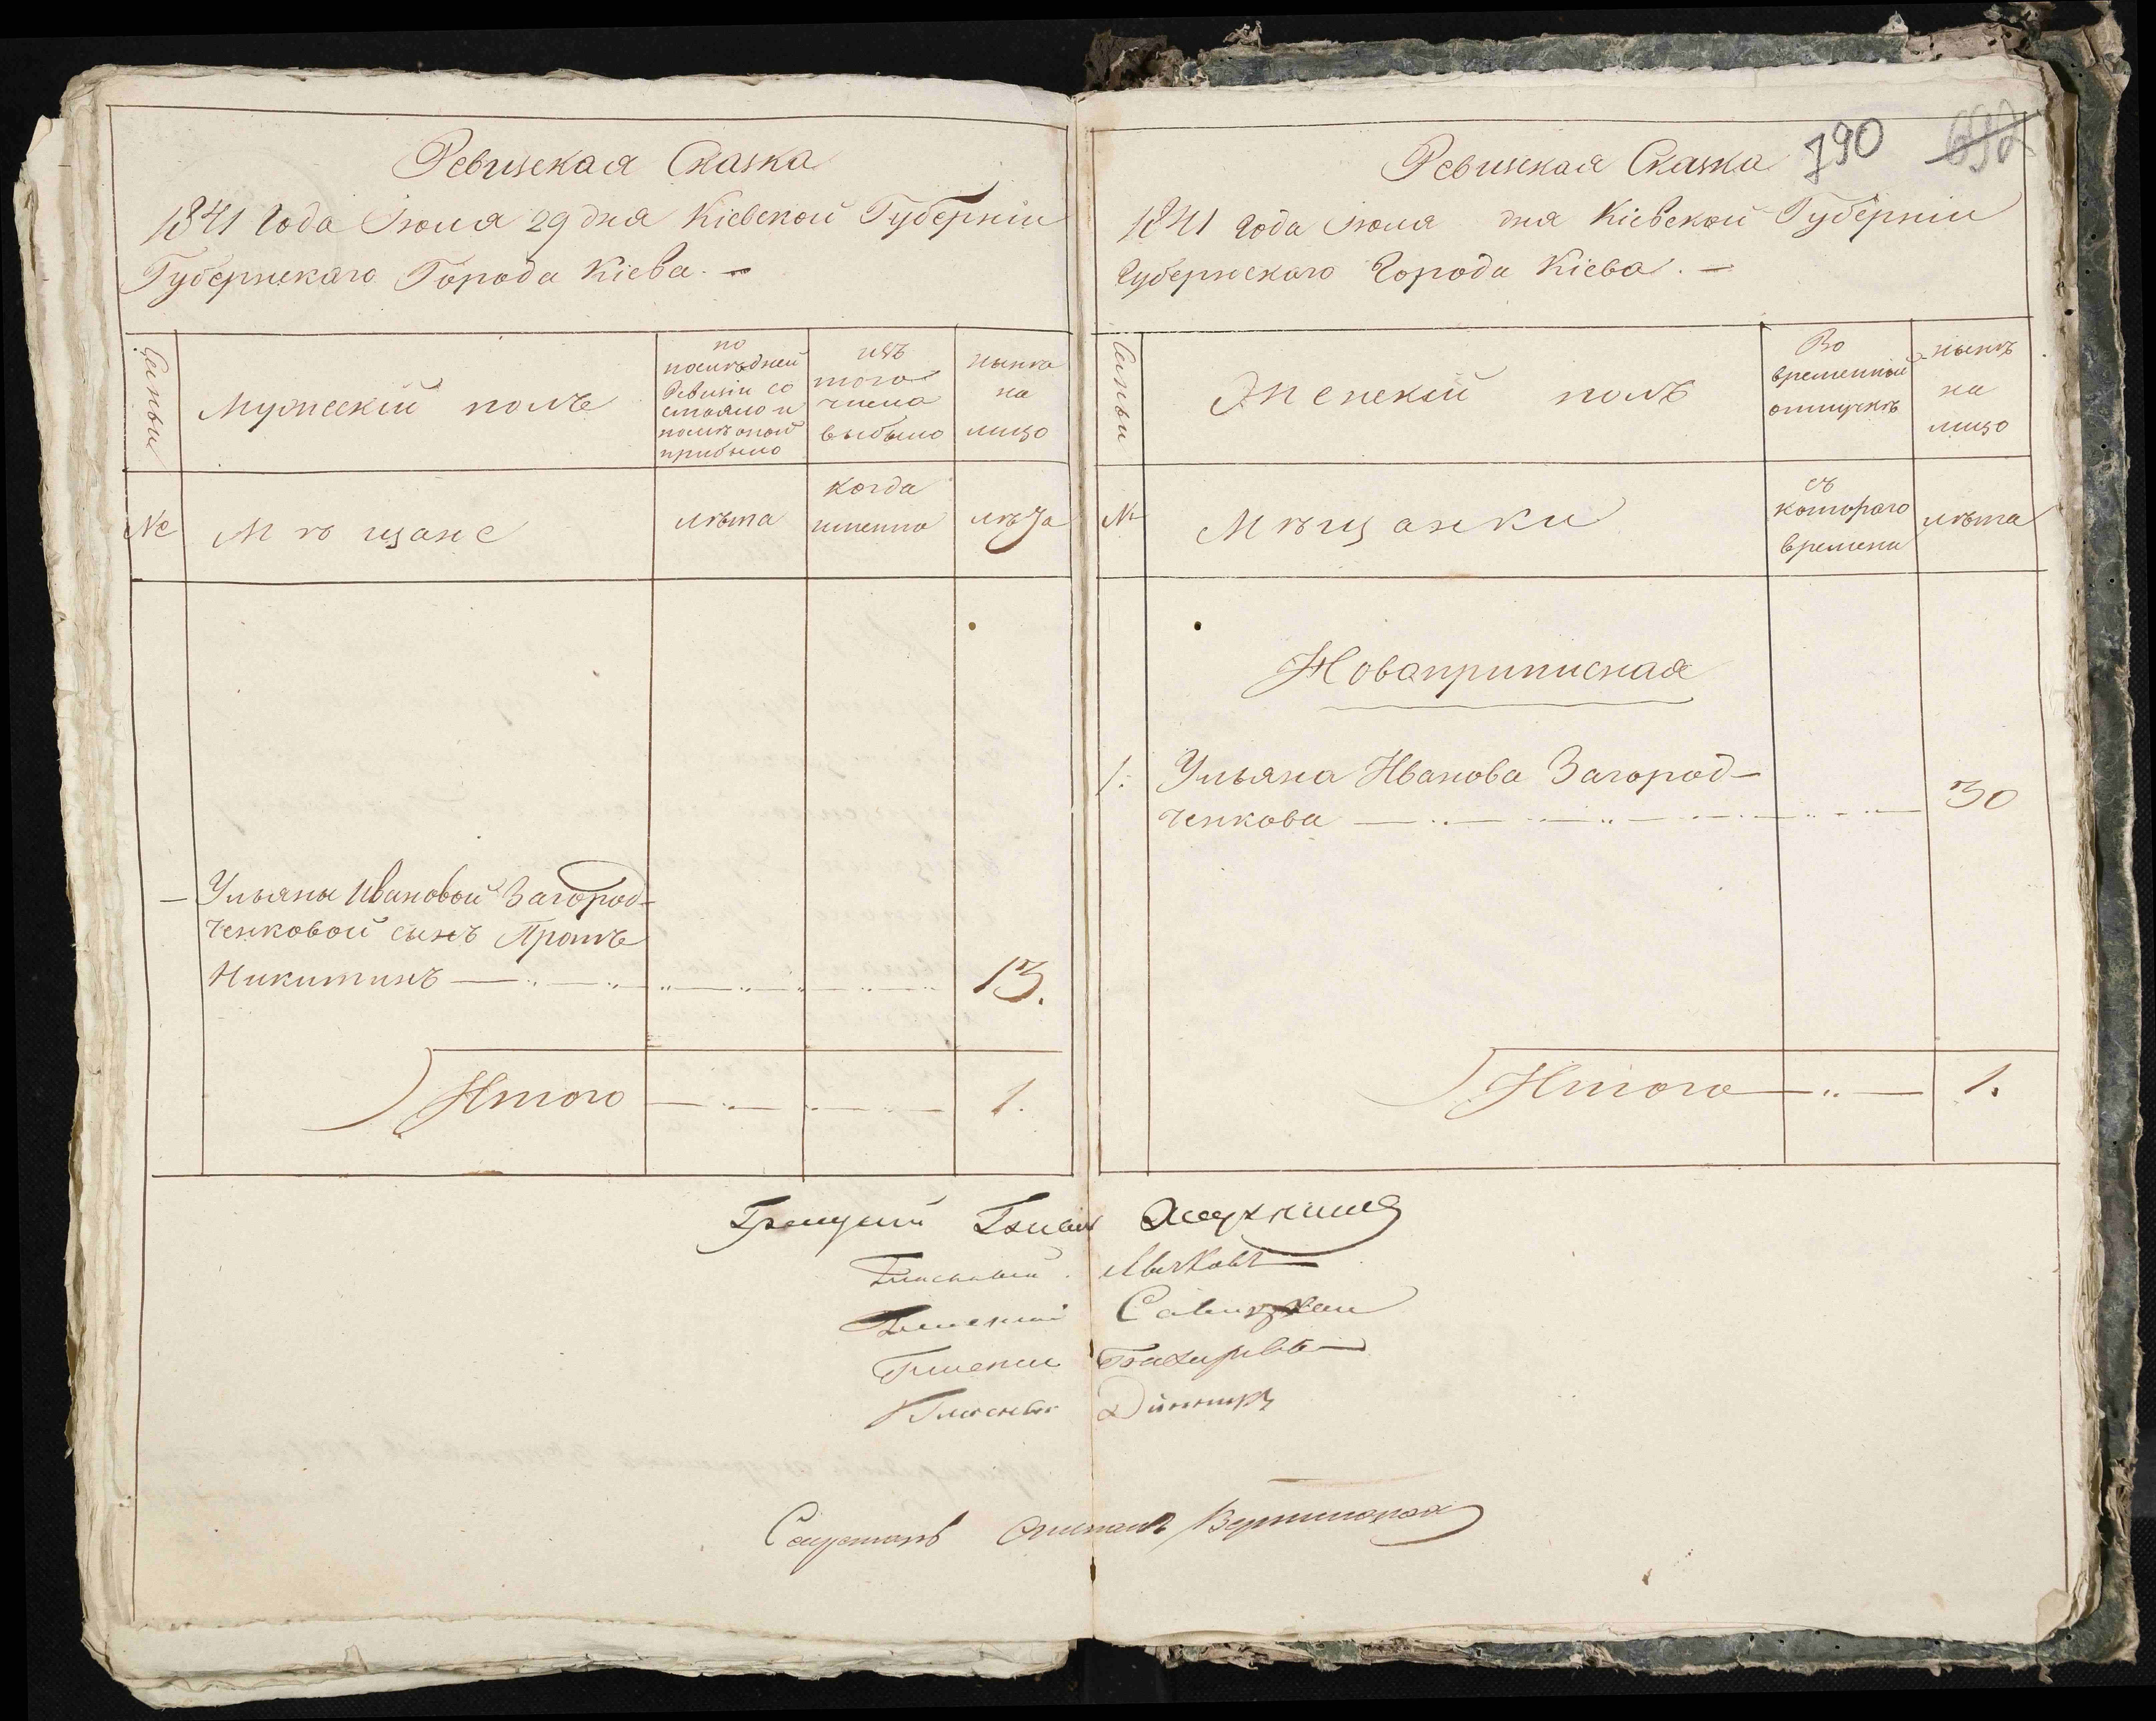 Ревизская Сказка
1841 Года Іюля 29 дня Кіевской Губерніи
Губернскаго Города Кіева. —
Семьи
Мужескій полъ
по
послѣдней
Ревизіи со
стояло и
послѣ оной
прибыло
изъ
того
числа
выбыло
нынѣ
на
лицо
№
Мѣщане
лѣта
когда
именно
лѣта
— Ульяны Ивановой Загород-
ченковой сынъ
Никитинъ 13.
Итого 1.
Ревизская Сказка
790 692
1841 Года Іюля дня Кіевской Губерніи
Губернскаго Города Кіева. —
Семьи
Женскій полъ
Во
временной
отлучкѣ
нынѣ
на
лицо
№
Мѣщанки
съ
котораго
времени
лѣта
Новоприписная
1. Ульяна Иванова Загород-
ченкова 30
Итого 1.
Гласный
Гласный
Гласный
Гласный Динникъ